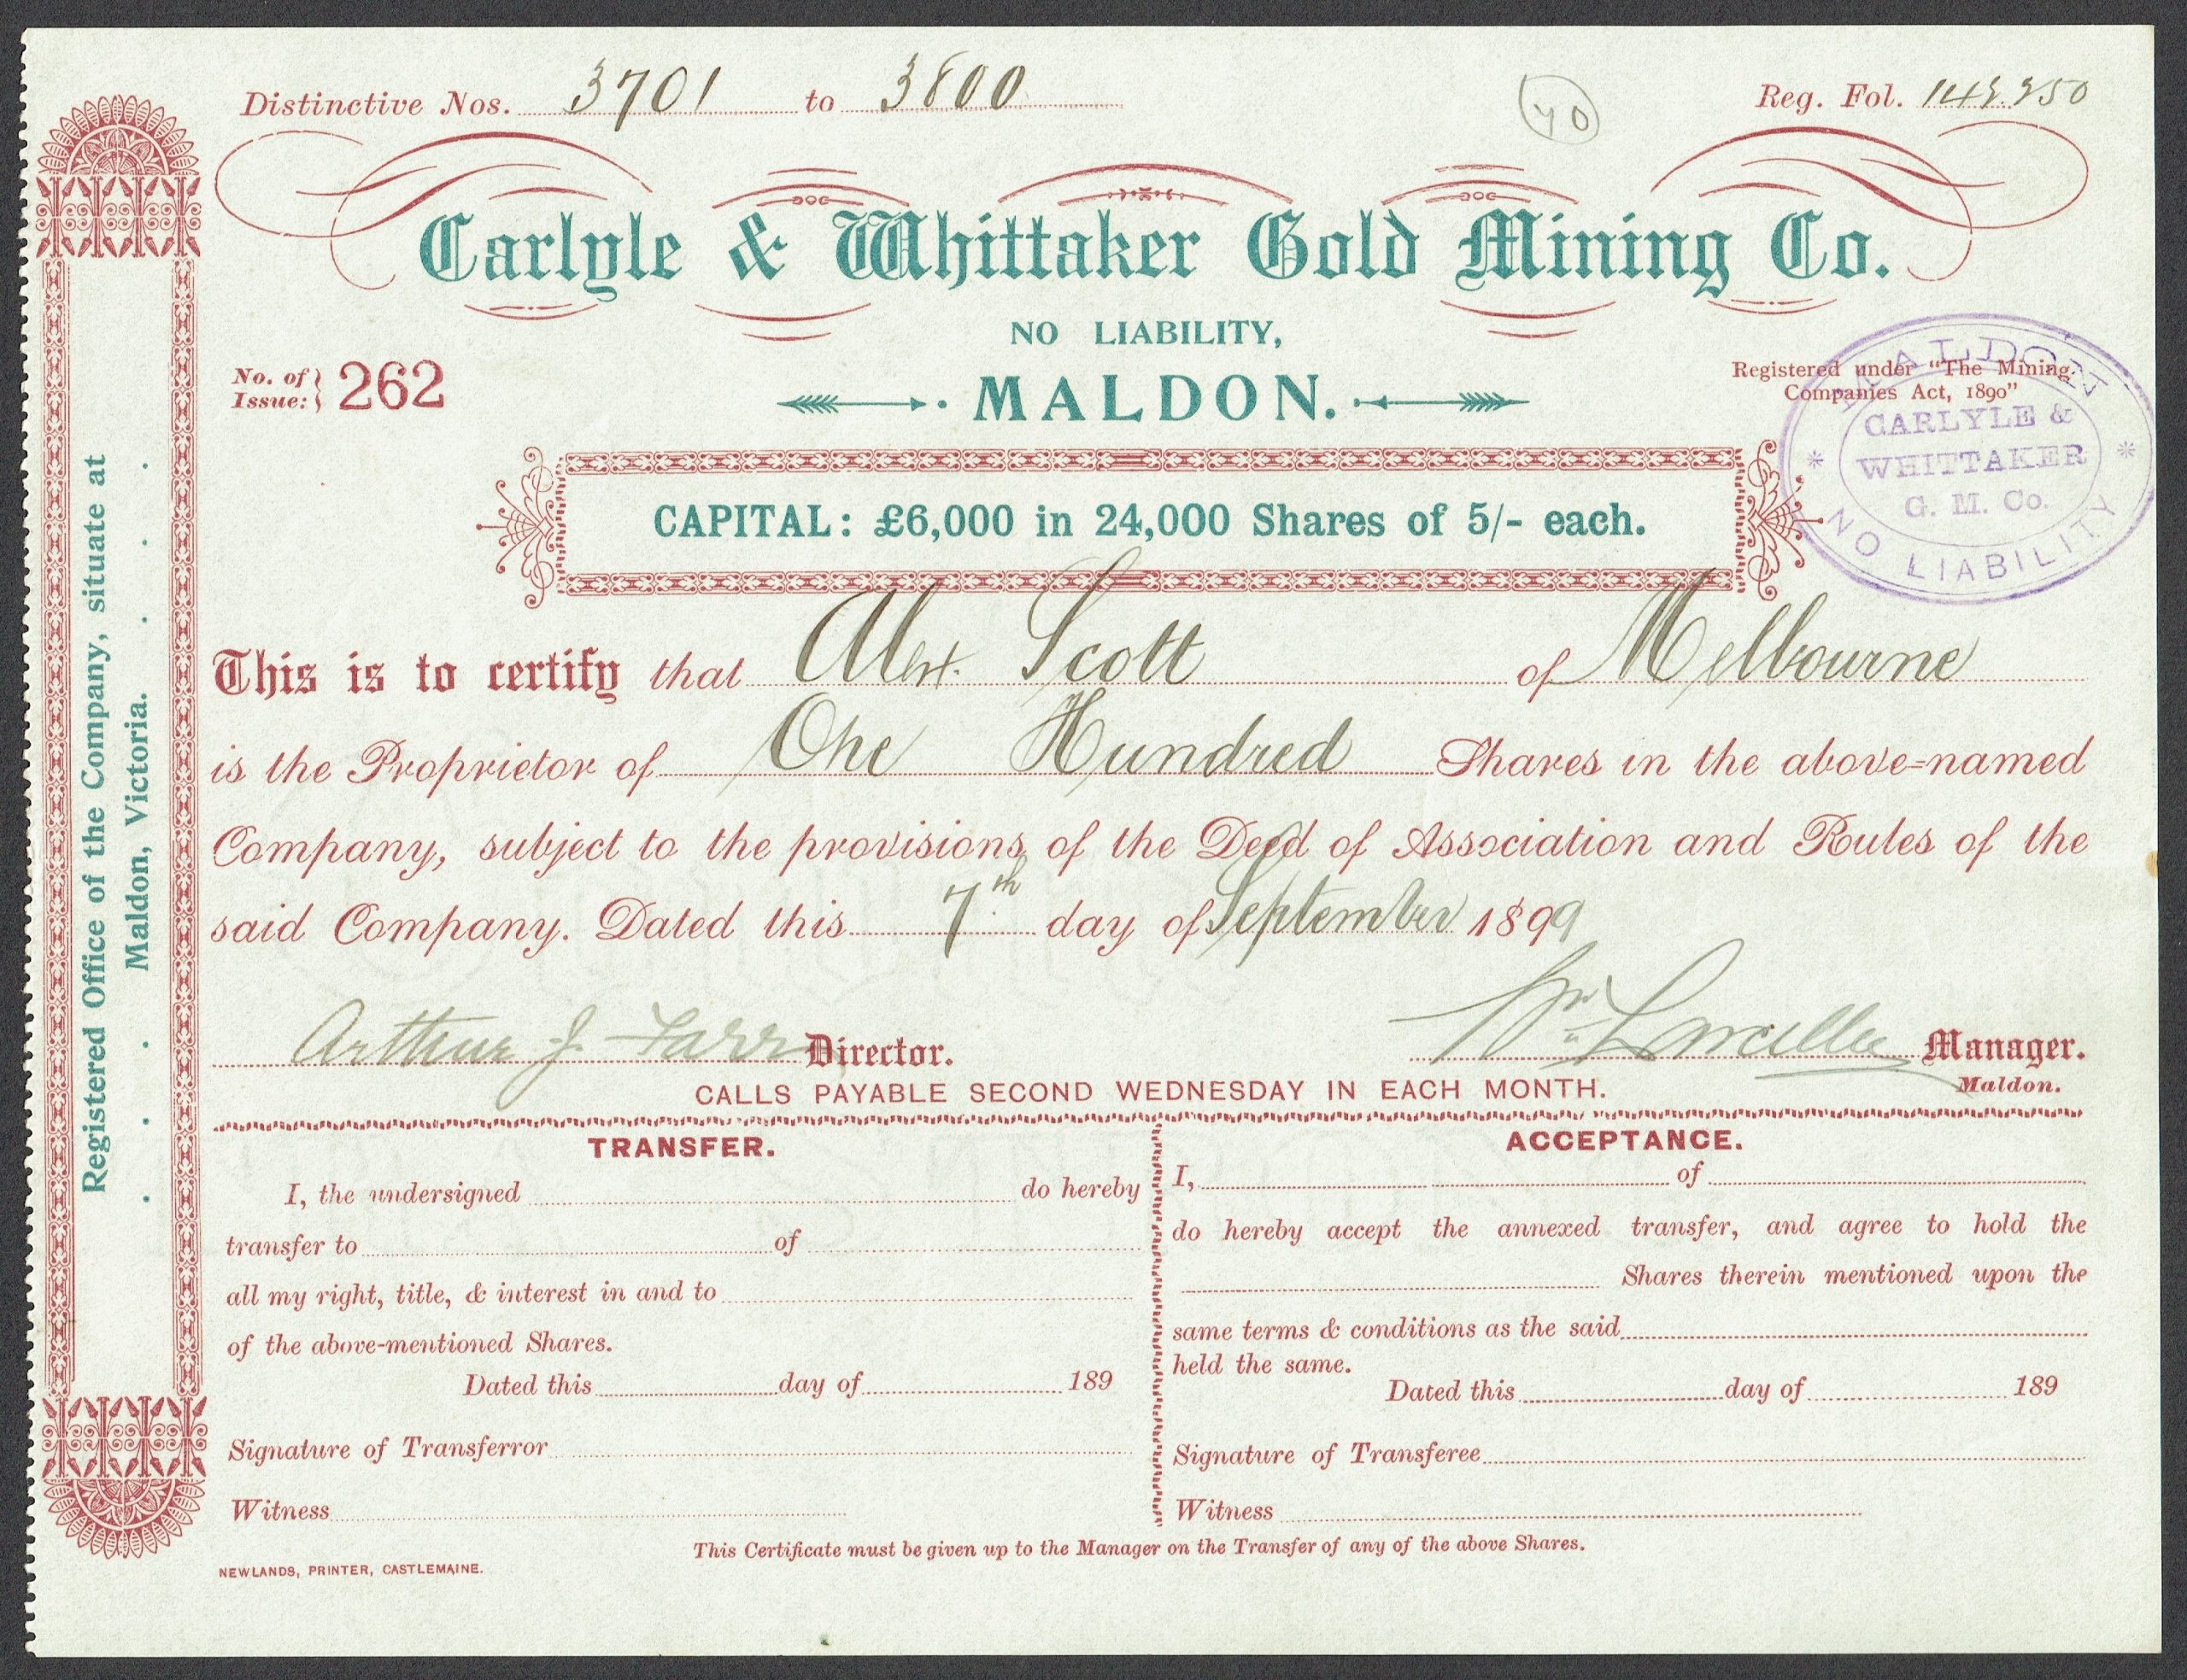 Distinctive Nos. 3701 to 3800
40
Reg. Fol.
Carlyle & Whittaker Gold Mining Co.
NO LIABILITY,
MALDON.
No. of Issue: 262
Registered under "The Mining
Companies Act, 1890"
MALDON
CARLYLE &
WHITTAKER
G. M. Co.
NO LIABILITY
CAPITAL: £6,000 in 24,000 Shares of 5/- each.
This is to certify that Alext. Scott of Melbourne
is the Proprietor of One Hundred Shares in the above-named
Company, subject to the provisions of the Deed of Association and Rules of the
said Company. Dated this 7th day of September 1899
Arthur J. Farr Director.
Manager.
Maldon.
CALLS PAYABLE SECOND WEDNESDAY IN EACH MONTH.
TRANSFER.
I, the undersigned do hereby
transfer to of
all my right, title, & interest in and to
of the above-mentioned Shares.
Dated this day of 189
Signature of Transferror
Witness
ACCEPTANCE.
I, of
do hereby accept the annexed transfer, and agree to hold the
Shares therein mentioned upon the
same terms & conditions as the said
held the same.
Dated this day of 189
Signature of Transferee
Witness
This Certificate must be given up to the Manager on the Transfer of any of the above Shares.
NEWLANDS, PRINTER, CASTLEMAINE.
Registered Office of the Company, situate at
Maldon, Victoria.